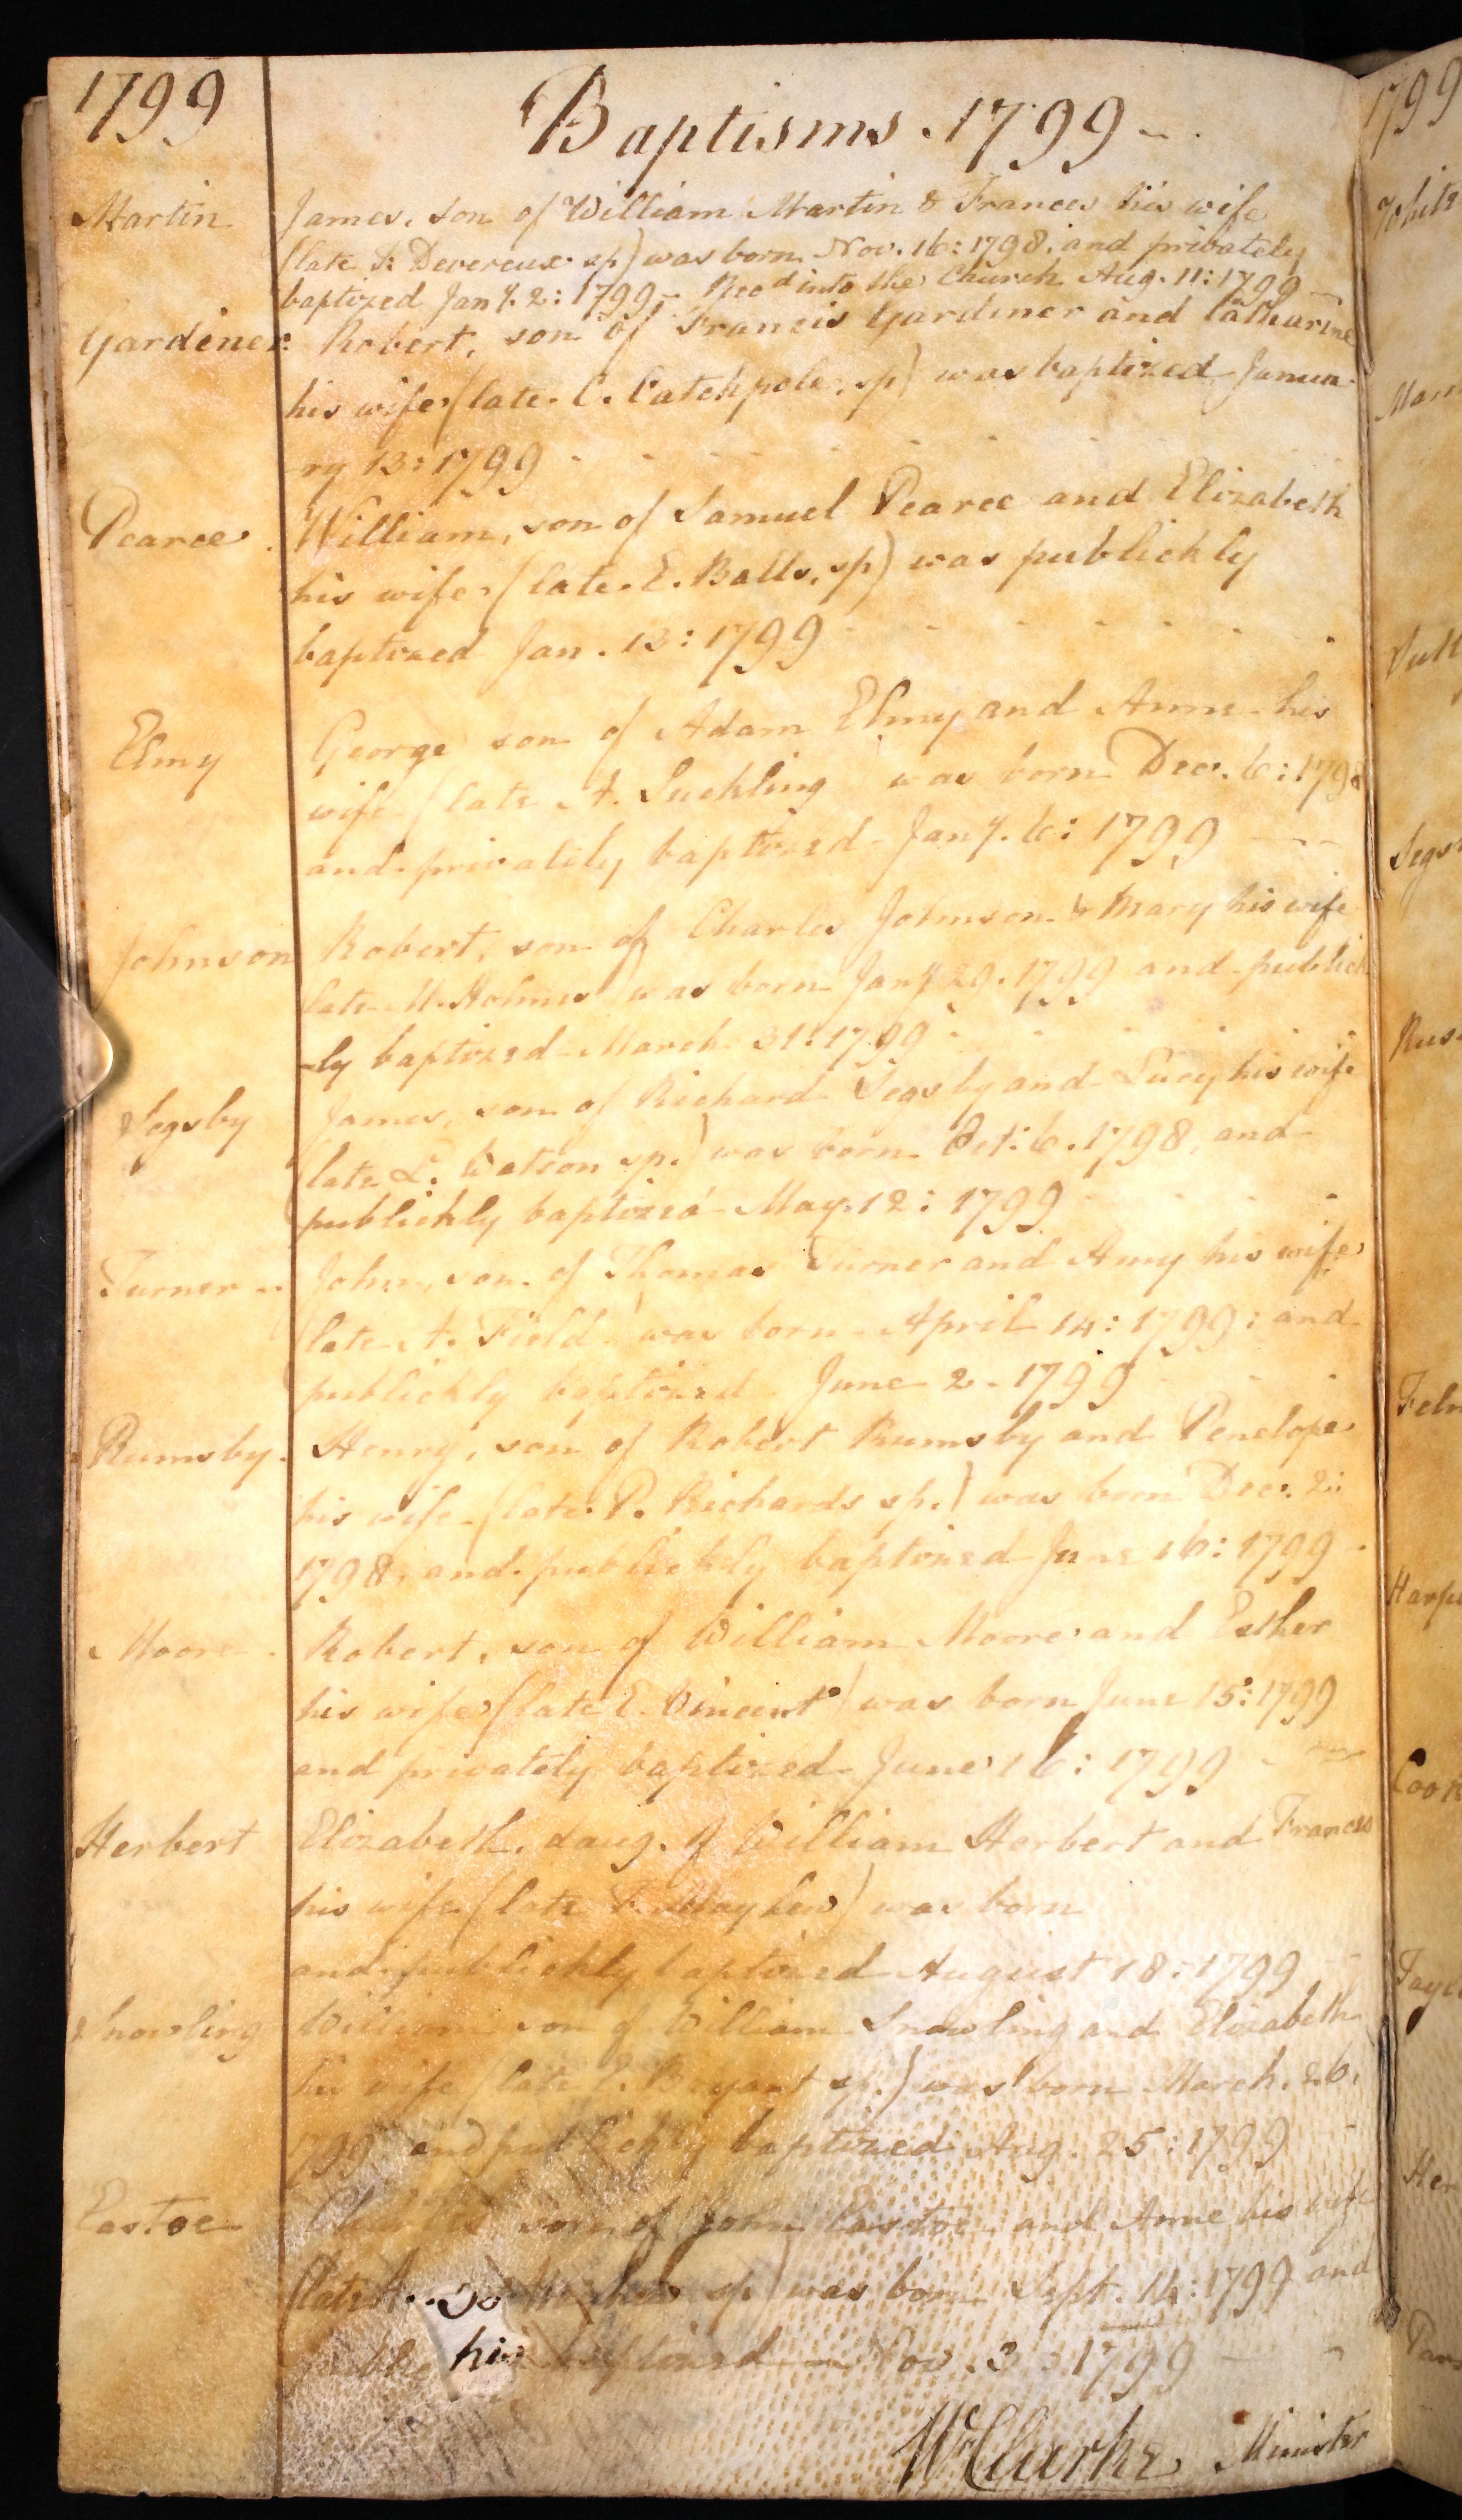 1799
Baptisms. 1799 -
Martin James, son of William Martin & Frances his wife
(late F: Devereux sp) was born Nov. 16: 1798: and privately
baptized Jany. 2: 1799 - Recd into the Church Aug. 11: 1799 -
Gardiner: Robert, son of Francis Gardiner and Catharine
his wife (late C. Catchpole, sp) was baptized Janua-
-ry 13: 1799
Pearce. William, son of Samuel Pearce and Elizabeth
his wife (late E. Balls, sp) was publickly
baptized Jan. 13: 1799
Elmy George son of Adam Elmy and Anne his
wife (late A. Suckling was born Dec. 6: 1798
and privately baptized Jany. 6: 1799
Johnson Robert, son of Charles Johnson & Mary his wife
late M. Holmes was born Jany 29. 1799 and publick
-ly baptized March 31: 1799
Segsby James, son of Richard Segsby and Lucy his wife
(late L. Watson sp.) was born Oct: 6. 1798, and
publickly baptized May. 12: 1799
Turner - John, son of Thomas Turner and Amy his wife
(late A. Field was born April 14: 1799: and
publickly baptized June 2. 1799
Rumsby. Henry, son of Robert Rumsby and Penelope
his wife (late P. Richards sp.) was born Dec. 2:
1798, and publickly baptized June 16: 1799 -
Moore Robert, son of William Moore and Esther
his wife (late E. Vincent) was born June 15: 1799
and privately baptized June 16: 1799
Herbert Elizabeth, daug. of William Herbert and Frances
his wife (late F. Mayhew) was born
and publickly baptized August 18: 1799
Snowling William son of William Snowling and Elizabeth
his wife (late E. Bryant sp.) was born March. 26.
1799 and publickly baptized Aug. 25: 1799
Eastoe Charles son of John Eastoe and Anne his wife
(late A. sp) was born Sept. 14: 1799 and
baptized Nov. 3: 1799
Wm Clarke Minister
1799
White
Segs
Cook